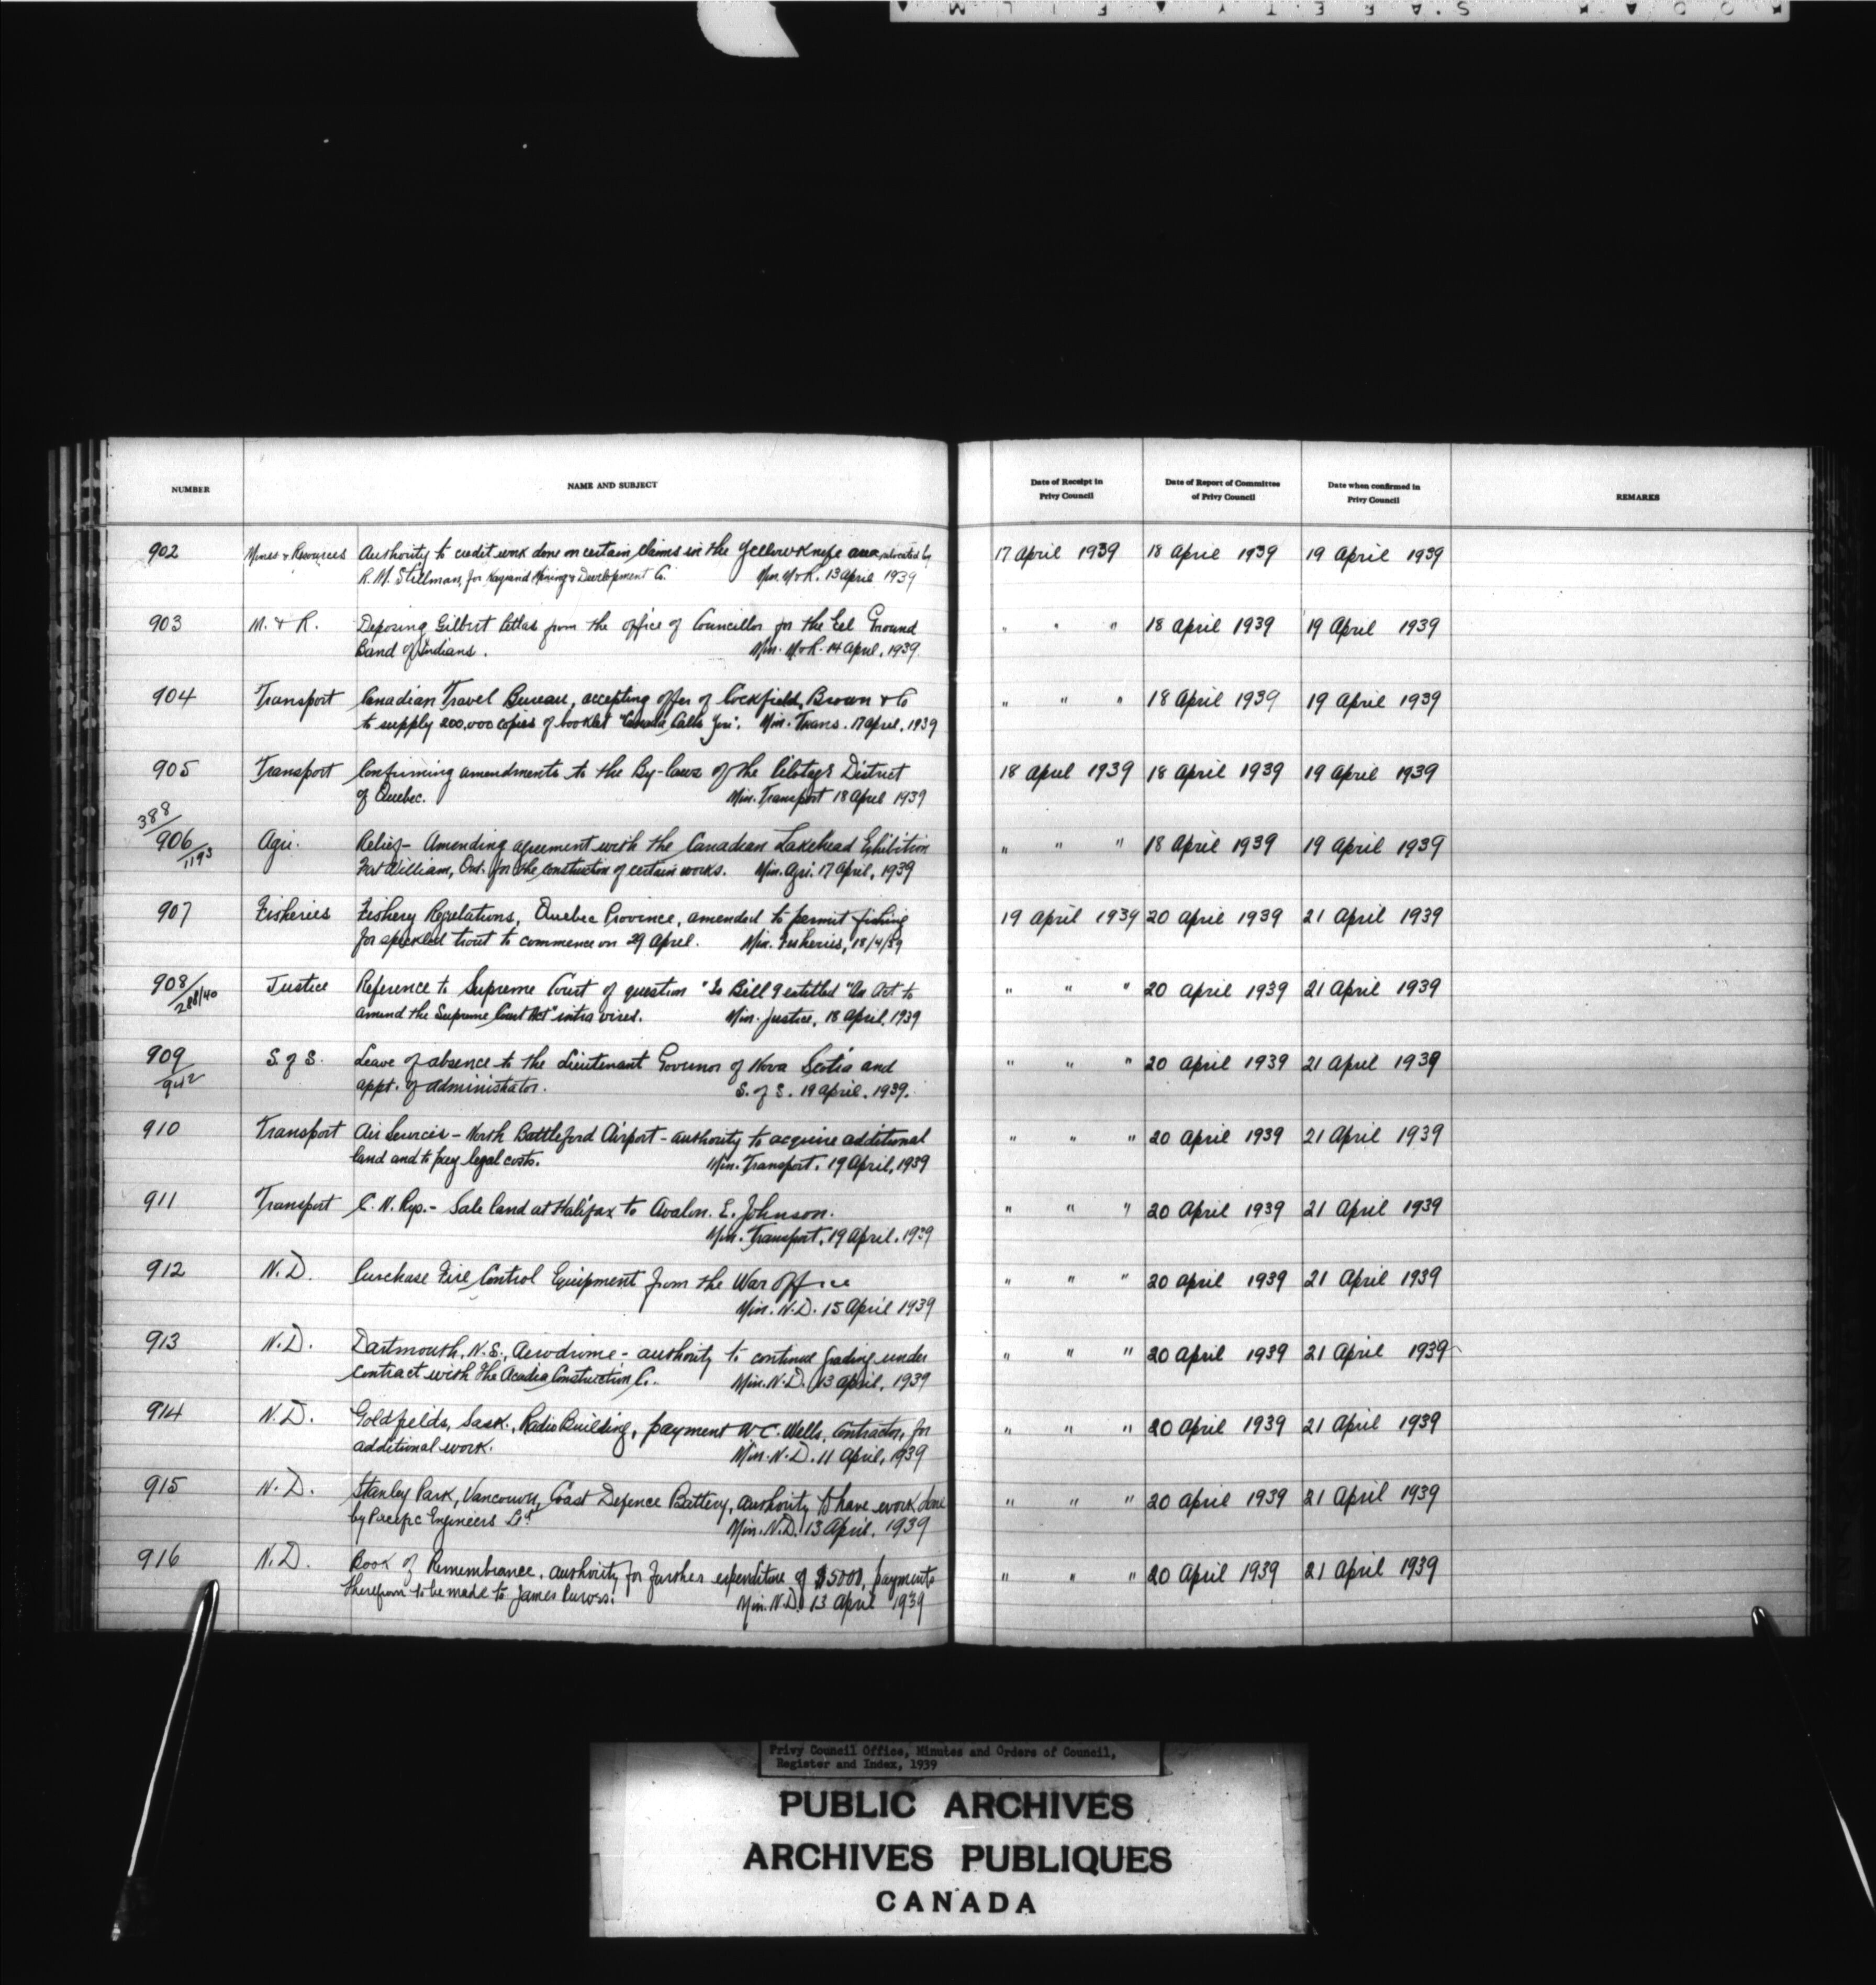 NUMBER NAME AND SUBJECT Date of Receipt in Privy Council Date of Report of Committee of Privy Council Date when confirmed in Privy Council REMARKS
902 Mines & Resources Authority to credit work done on certain claims in the Yellowknife area, relocated by 17 April 1939 18 April 1939 19 April 1939
R. M. Stillman, for Mining & Development Co. Min. M & R. 13 April 1939
903 M. & R. Deposing Gilbert from the office of Councillor for the Eel Ground " " " 18 April 1939 19 April 1939
Band of Indians. Min. M & R. 14 April, 1939
904 Transport Canadian Travel Bureau, accepting offer of Cockfield, Brown & Co " " " 18 April 1939 19 April 1939
to supply 200,000 copies of booklet "Canada Calls You". Min. Trans. 17 April, 1939
905 Transport Confirming amendments to the By-laws of the Pilotage District 18 April 1939 18 April 1939 19 April 1939
of Quebec. Min. Transport 18 April 1939
388/
906 Agri. Relief - Amending agreement with the Canadian Lakehead Exhibition " " " 18 April 1939 19 April 1939
/1193 Fort William, Ont. for the construction of certain works. Min. Agri. 17 April, 1939
907 Fisheries Fishery Regulations, Quebec Province, amended to permit fishing 19 April 1939 20 April 1939 21 April 1939
for speckled trout to commence on 29 April. Min. Fisheries, 18/4/39
908/ Justice Reference to Supreme Court of question "Is Bill 9 entitled "An Act to " " " 20 April 1939 21 April 1939
288/40 amend the Supreme Court Act" intra vires. Min. Justice, 18 April, 1939
909 S of S. Leave of absence to the Lieutenant Governor of Nova Scotia and " " " 20 April 1939 21 April 1939
/942 appt. of administrator. S. of S. 19 April, 1939.
910 Transport Air Services - North Battleford Airport - authority to acquire additional " " " 20 April 1939 21 April 1939
land and to pay legal costs. Min. Transport. 19 April, 1939
911 Transport C. N. Rys. - Sale land at Halifax to Avalon. E. Johnson. " " " 20 April 1939 21 April 1939
Min. Transport, 19 April. 1939
912 N. D. Purchase Fire Control Equipment from the War Office " " " 20 April 1939 21 April 1939
Min. N. D. 15 April 1939
913 N. D. Dartmouth, N.S., Aerodrome - authority to continue grading under " " " 20 April 1939 21 April 1939
contract with the Acadia Construction Co. Min. N. D. 13 April, 1939
914 N. D. Goldfields, Sask., Radio Building, payment W C. Wells, Contractor, for " " " 20 April 1939 21 April 1939
additional work. Min. N. D. 11 April, 1939
915 N. D. Stanley Park, Vancouver, Coast Defence Battery, authority to have work done " " " 20 April 1939 21 April 1939
by Pacific Engineers Ltd Min. N.D. 13 April. 1939
916 N. D. Book of Remembrance, authority for further expenditure of $5000, payments " " " 20 April 1939 21 April 1939
therefrom to be made to James Purves. Min. N.D. 13 April 1939
Privy Council Office, Minutes and Orders of Council,
Register and Index, 1939
PUBLIC ARCHIVES
ARCHIVES PUBLIQUES
CANADA